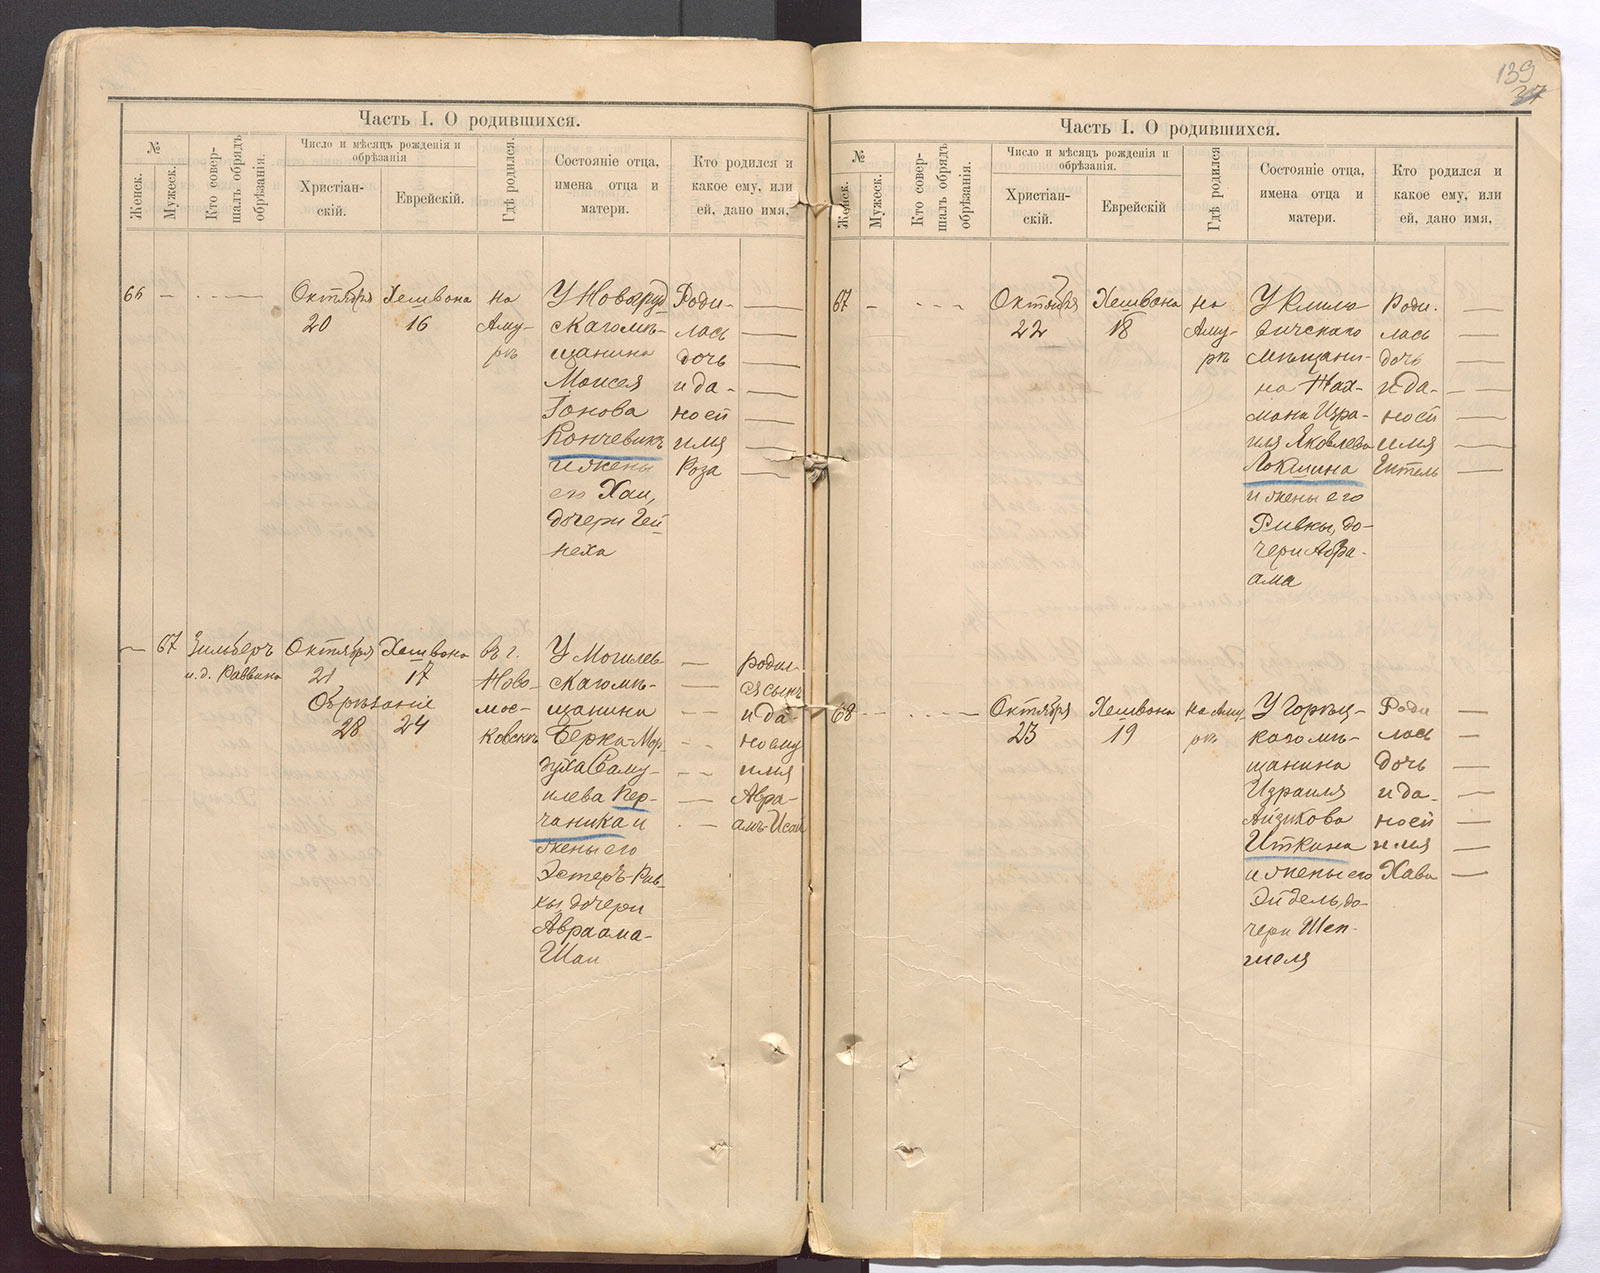 139
37
Часть I. О родившихся.
№
Женск.
Мужеск.
Кто совер-
шалъ обрядъ
обрѣзанія.
Число и мѣсяцъ рожденія и
обрѣзанія
Христіан-
скій.
Еврейскій.
Гдѣ родился.
Состояніе отца,
имена отца и
матери.
Кто родился и
какое ему, или
ей, дано имя,
66
Октября
20
Хешвона
16
на
Аму-
рѣ
У Новогруд
скагомѣ-
щанина
Моисея
Гонова
Кончевикъ
и жены
его Хаи,
дочери Гей
неха
Роди-
лась
дочь
и да-
ной
имя
Роза
67
Зимберъ
и.д. Раввина
Октября
21
Обрѣзаніе
28
Хешвона
17
24
въ г.
Ново-
мос-
ковскѣ
У Могилев-
скагомѣ-
щанина
Берка-Мор-
духа Саму-
илева Кер-
чаника и
жены его
Эстеръ-Рив-
кы, дочери
Авраама-
Шаи
родил-
ся сынъ
и да-
ному
имя
Авра-
амъ-Исай
Часть I. О родившихся.
№
Женск.
Мужеск.
Кто совер-
шалъ обрядъ
обрѣзанія.
Число и мѣсяцъ рожденія и
обрѣзанія.
Христіан-
скій.
Еврейскій
Гдѣ родился
Состояніе отца,
имена отца и
матери.
Кто родился и
какое ему, или
ей, дано имя,
67
Октября
22
Хешвона
18
на
Аму-
рѣ
У Климо
вичскаго
мѣщани-
на Нах-
мана Изра-
иля Яковлева
Локшина
и жены его
Ривкы, до-
чери Абра-
ама
Роди-
лась
дочь
и да-
ной
имя
Ентель
68
Октября
23
Хешвона
19
на Аму-
рѣ
У Горѣц-
кагомѣ-
щанина
Израиля
Айзикова
Иткина
и жены его
Эйдель, до-
чери Шеп-
шеля
Роди
лась
дочь
и да-
ной
имя
Хава